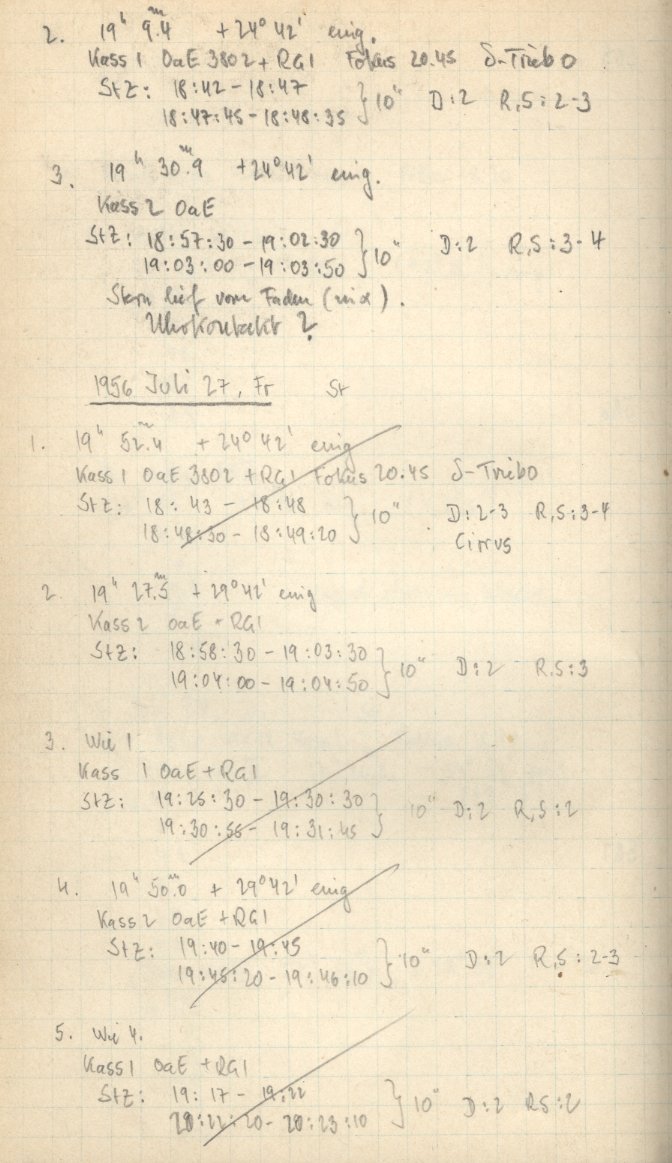 2. 19ʰ 9ᵐ.4 +24°42' einig.
Kass 1 OaE 3802 + RG1 Fokus 20.45 S-Triebo
StZ: 18:42 - 18:47 } 10" D:2 R,S:2-3
18:47:45 - 18:48:35
3. 19ʰ 30ᵐ.9 +24°42' einig.
Kass 2 OaE
StZ: 18:57:30 - 19:02:30 } 10" D:2 R,S:3-4
19:03:00 - 19:03:50
Stern lief vom Faden (in α).
Uhrkontakt?
1956 Juli 27, Fr St
1. 19ʰ 52ᵐ.4 +24°42' einig
Kass 1 OaE 3802 + RG1 Fokus 20.45 S-Triebo
StZ: 18:43 - 18:48 } 10" D:2-3 R,S:3-4
18:48:30 - 18:49:20 Cirrus
2. 19ʰ 27ᵐ.5 +29°42' einig
Kass 2 OaE + RG1
StZ: 18:58:30 - 19:03:30 } 10" D:2 R.S:3
19:04:00 - 19:04:50
3. Wie 1
Kass 1 OaE + RG1
StZ: 19:25:30 - 19:30:30 } 10" D:2 R,S:2
19:30:55 - 19:31:45
4. 19ʰ 50ᵐ.0 +29°42' einig
Kass 2 OaE + RG1
StZ: 19:40 - 19:45 } 10" D:2 R,S:2-3
19:45:20 - 19:46:10
5. Wie 4.
Kass 1 OaE + RG1
StZ: 19:17 - 19:22 } 10" D:2 RS:2
20:22:20 - 20:23:10